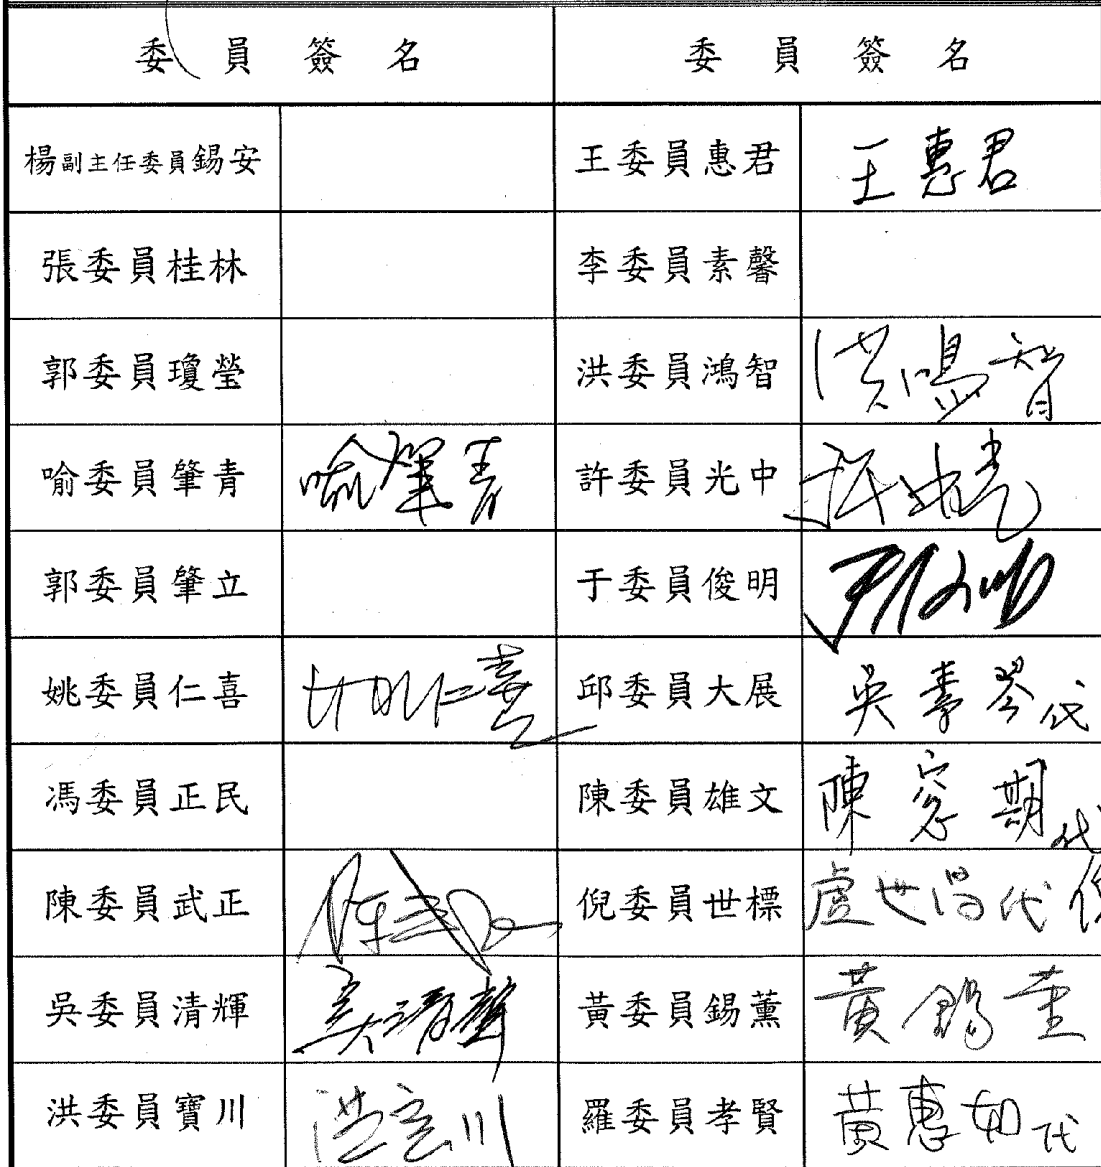 委員簽名 委員簽名
楊副主任委員錫安 王委員惠君 王惠君
張委員桂林 李委員素馨
郭委員瓊瑩 洪委員鴻智 洪鴻智
喻委員肇青 喻肇青 許委員光中 許
郭委員肇立 于委員俊明 于俊明
姚委員仁喜 姚仁喜 邱委員大展 吳 岑代
馮委員正民 陳委員雄文 陳 期代
陳委員武正 陳武正 倪委員世標 盧世昌代
吳委員清輝 吳清輝 黃委員錫薰 黃錫薰
洪委員寶川 洪寶川 羅委員孝賢 黃惠如代